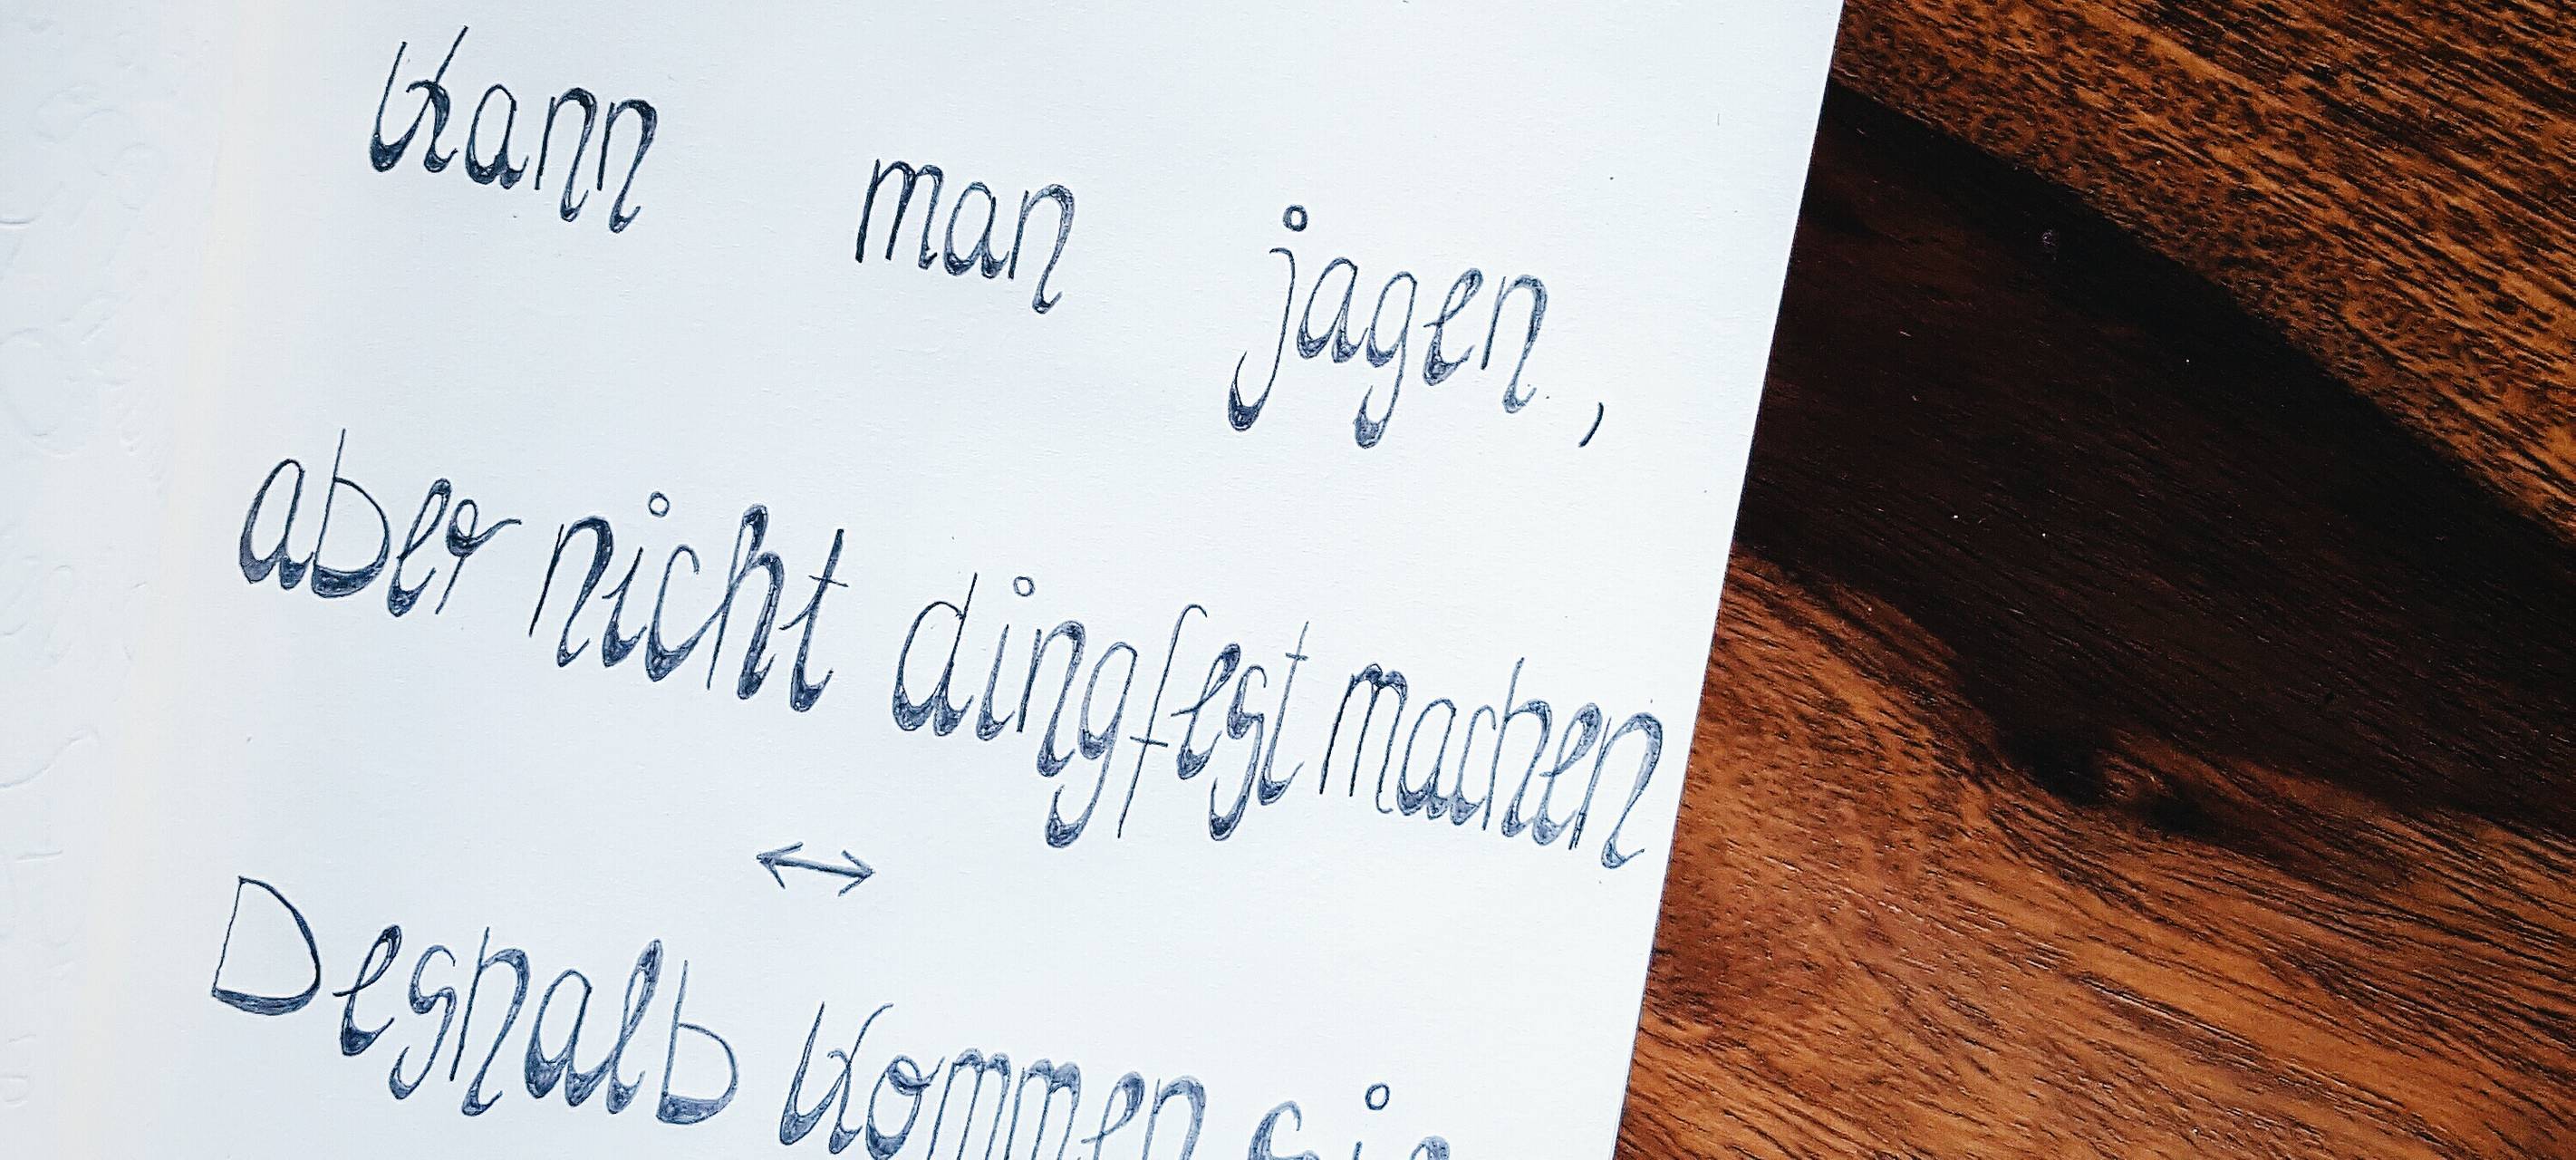 Kann man jagen,
aber nicht dingfest machen
↔
Deshalb kommen sie